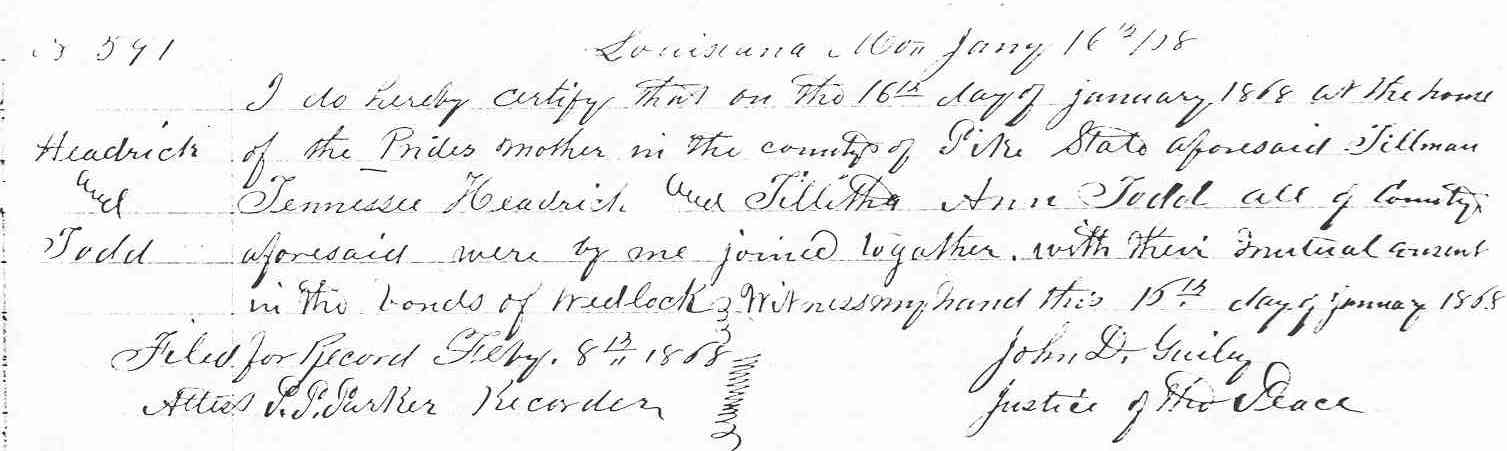 591 Louisiana Mo Jany 16th /68
I do hereby certify that on the 16th day of january 1868 at the home
Headrick of the Brides mother in the county of Pike State aforesaid Tillman
and Tennessee Headrick and Tillitha Ann Todd all of County
Todd aforesaid were by me joined together with their mutual consent
in the bonds of Wedlock Witness my hand this 16th day of january 1868
Filed for Record Feby. 8th 1868 John D.
Attest P. P. Parker Recorder Justice of the Peace